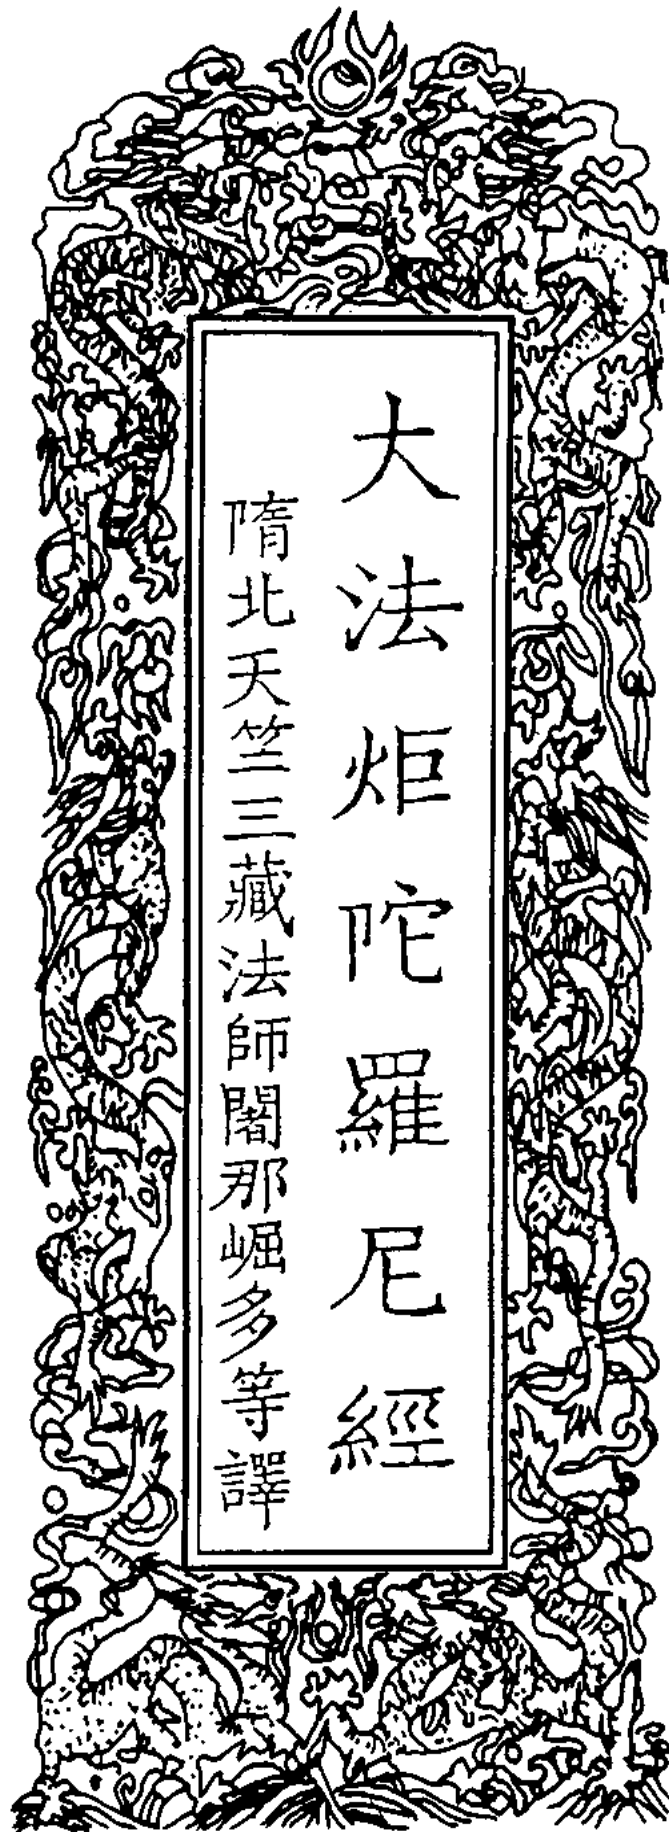 大法炬陀羅尼經
隋北天竺三藏法師闍那崛多等譯